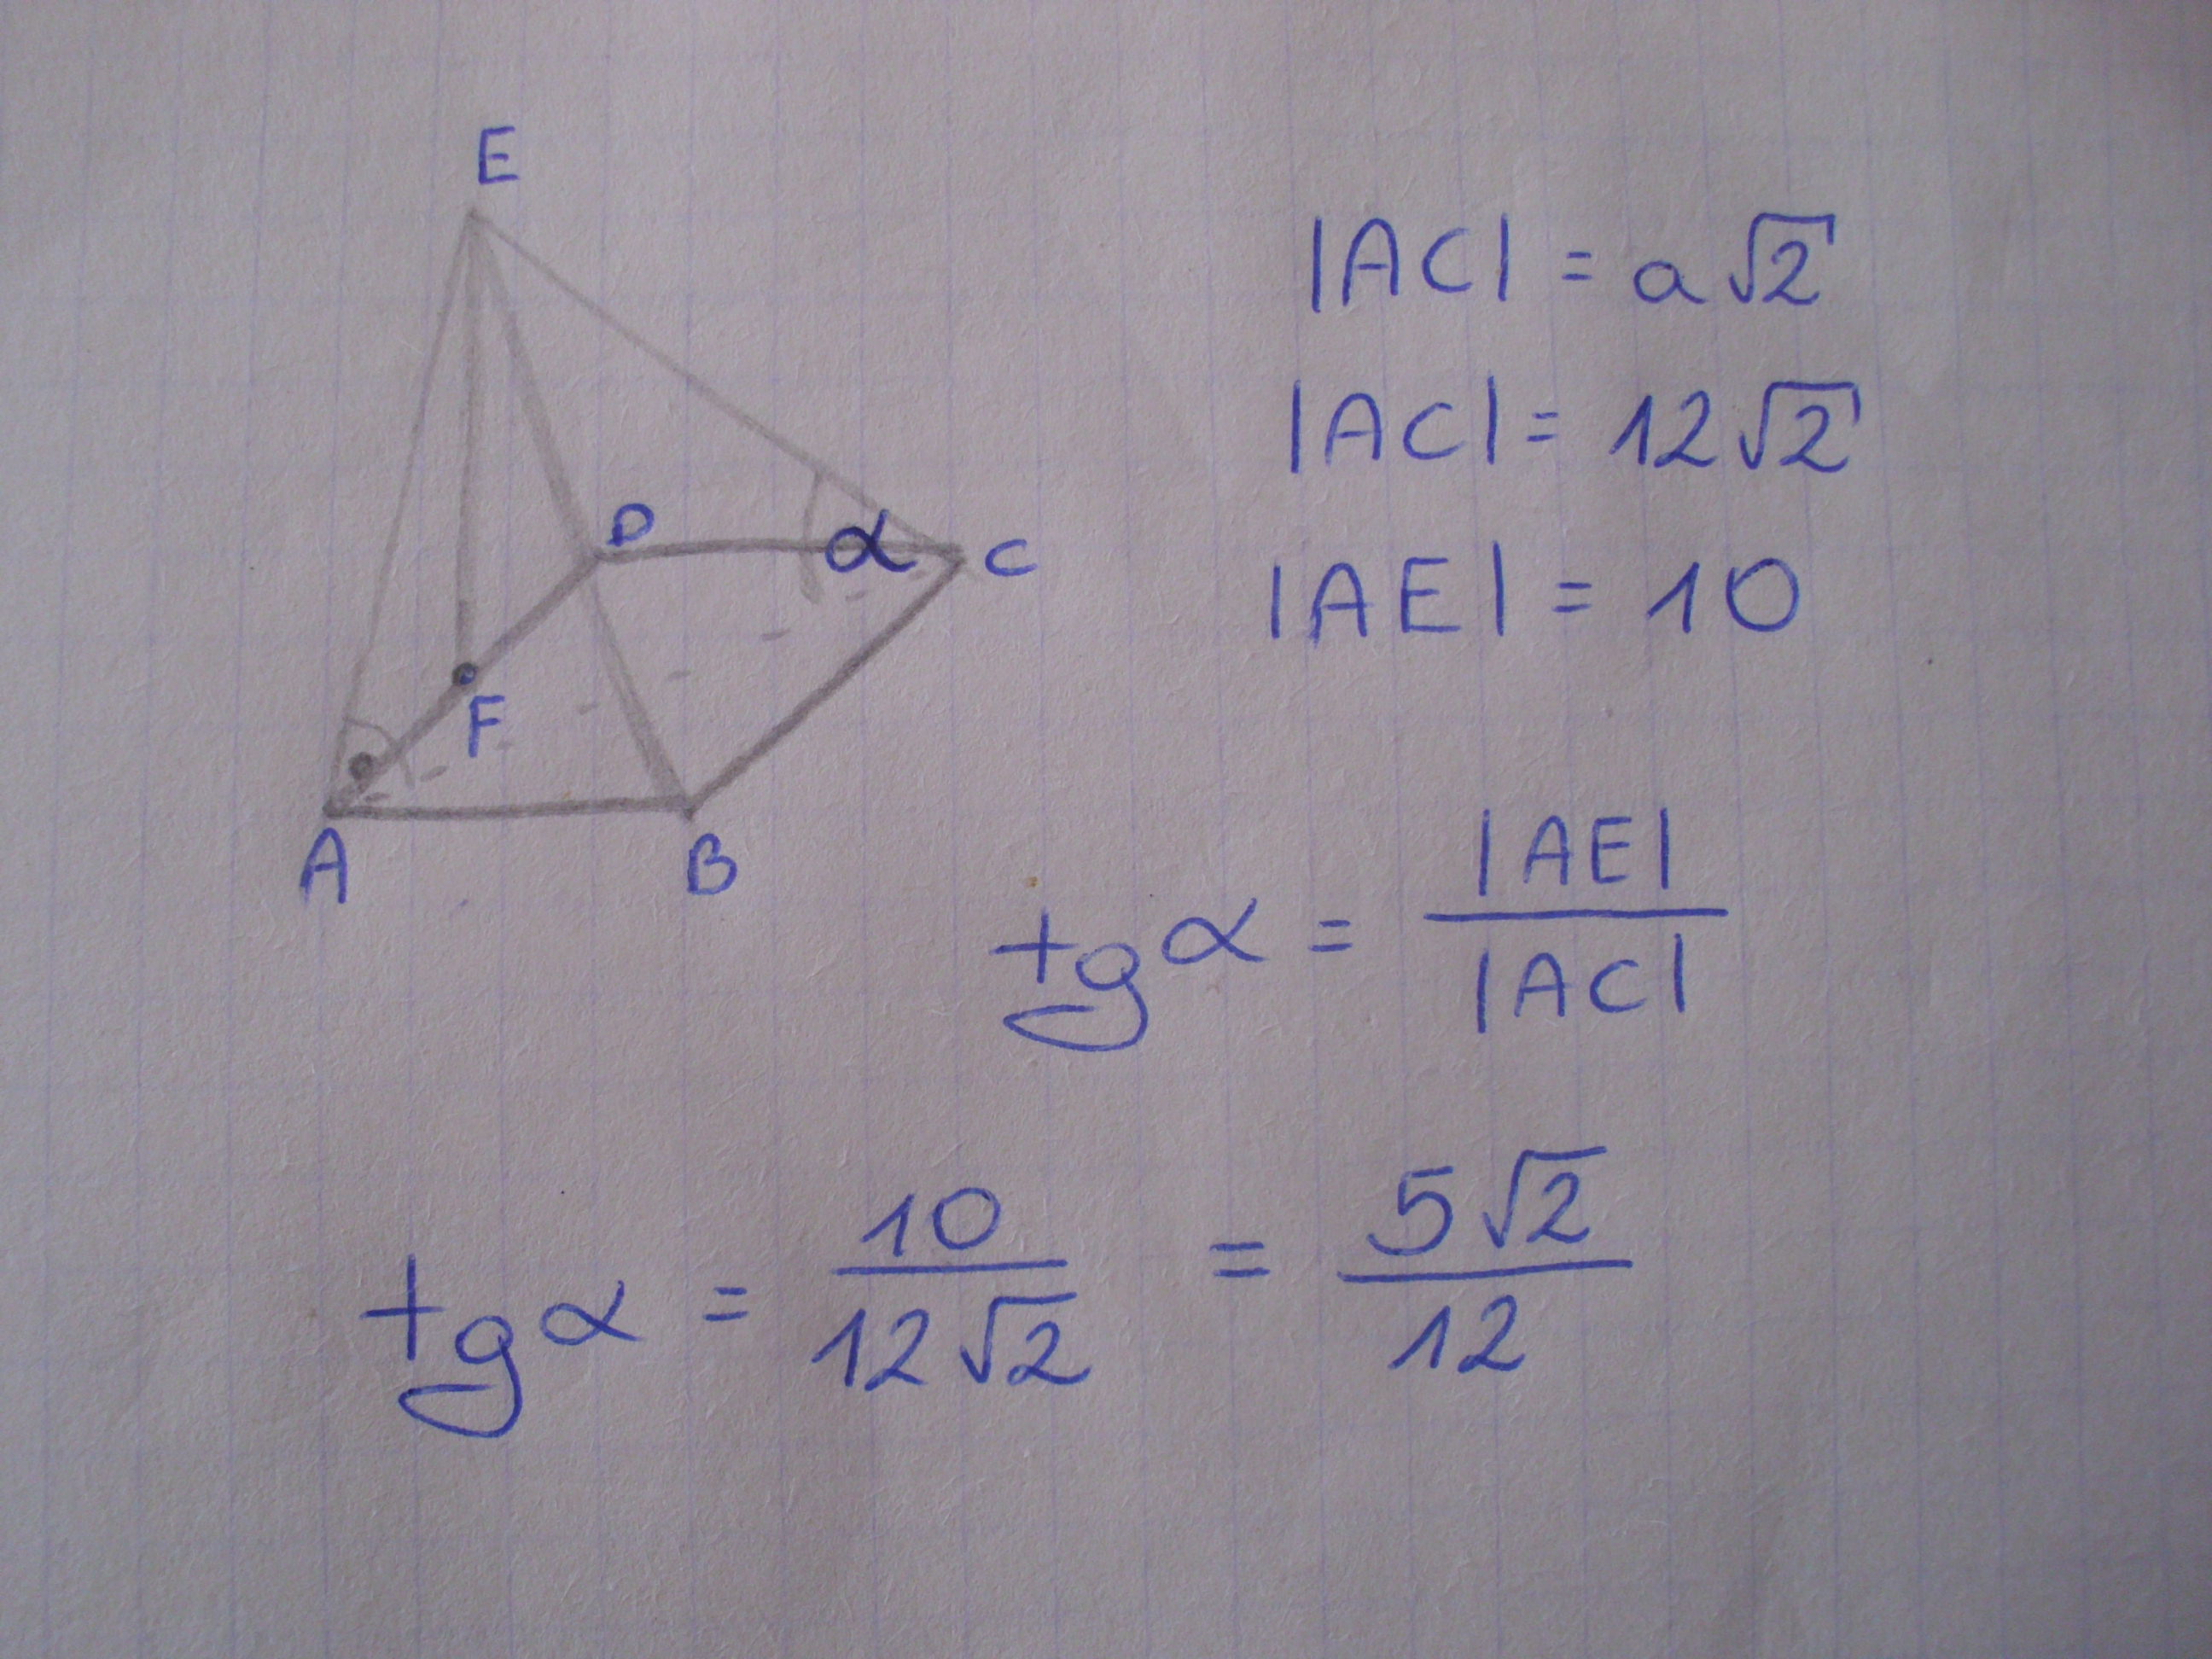 E
D
α
C
F
A
B
|AC| = a√2
|AC| = 12√2
|AE| = 10
tg α = |AE| / |AC|
tg α = 10 / 12√2 = 5√2 / 12